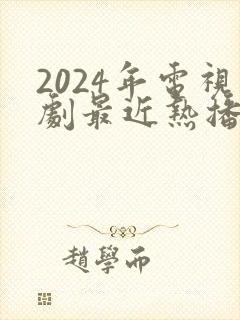 2024年電視
劇最近熱播
趙學而